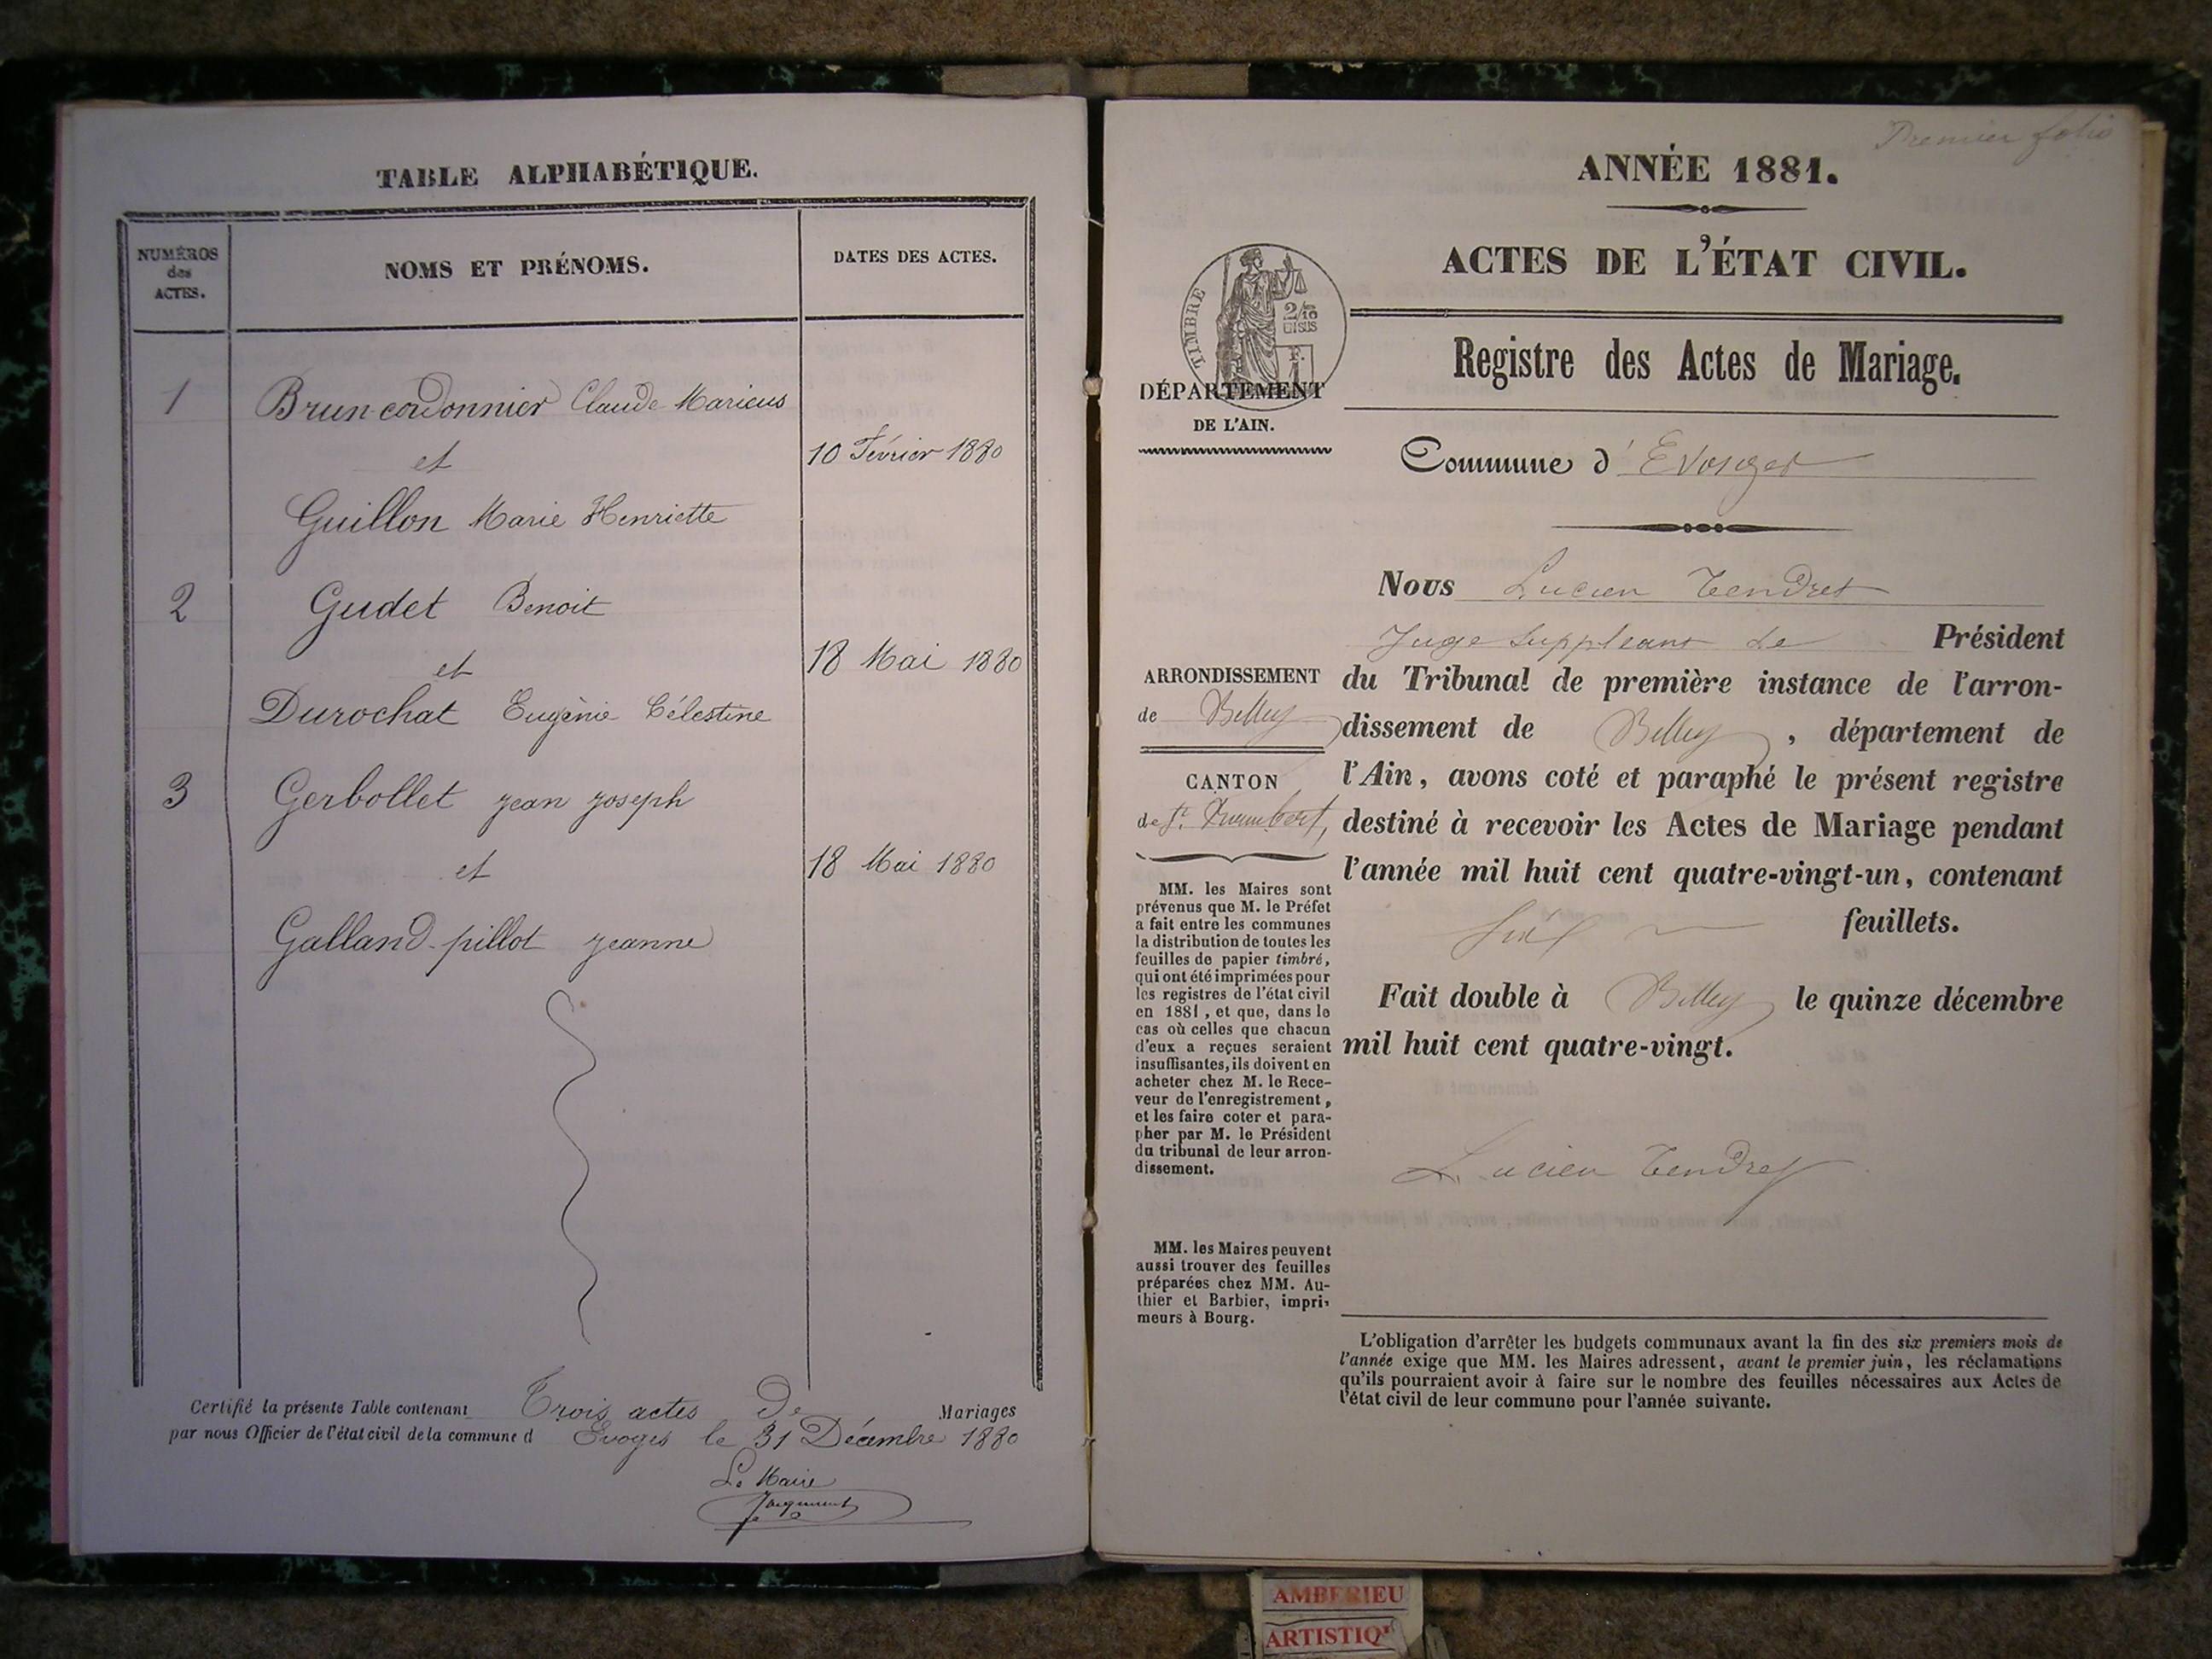 TABLE ALPHABÉTIQUE.
NUMÉROS
des
ACTES.
NOMS ET PRÉNOMS.
DATES DES ACTES.
1
Brun-cordonnier Claude Marieus
et
10 Février 1880
Guillon Marie Henriette
2
Gudet Benoit
et
18 Mai 1880
Durochat Eugènie Célestine
3
Gerbollet jean joseph
et
18 Mai 1880
Galland-pillot jeanne
Certifié la présente Table contenant Trois actes De Mariages
par nous Officier de l'état civil de la commune d Evoges le 31 Décembre 1880
Le Maire
Premier folio
ANNÉE 1881.
ACTES DE L'ÉTAT CIVIL.
TIMBRE
2/10
EN SUS
F.
Registre des Actes de Mariage.
DÉPARTEMENT
DE L'AIN.
Commune d' Evosges
Nous Lucien Tendret
Juge suppléant le Président
ARRONDISSEMENT
de Belley
CANTON
de St. Rambert,
du Tribunal de première instance de l'arron-
dissement de Belley, département de
l'Ain, avons coté et paraphé le présent registre
destiné à recevoir les Actes de Mariage pendant
l'année mil huit cent quatre-vingt-un, contenant
six feuillets.
Fait double à Belley le quinze décembre
mil huit cent quatre-vingt.
Lucien Tendret
MM. les Maires sont
prévenus que M. le Préfet
a fait entre les communes
la distribution de toutes les
feuilles de papier timbré,
qui ont été imprimées pour
les registres de l'état civil
en 1881, et que, dans le
cas où celles que chacun
d'eux a reçues seraient
insuffisantes, ils doivent en
acheter chez M. le Rece-
veur de l'enregistrement,
et les faire coter et para-
pher par M. le Président
du tribunal de leur arron-
dissement.
MM. les Maires peuvent
aussi trouver des feuilles
préparées chez MM. Au-
thier et Barbier, impri-
meurs à Bourg.
L'obligation d'arrêter les budgets communaux avant la fin des six premiers mois de
l'année exige que MM. les Maires adressent, avant le premier juin, les réclamations
qu'ils pourraient avoir à faire sur le nombre des feuilles nécessaires aux Actes de
l'état civil de leur commune pour l'année suivante.
AMBERIEU
ARTISTIQ